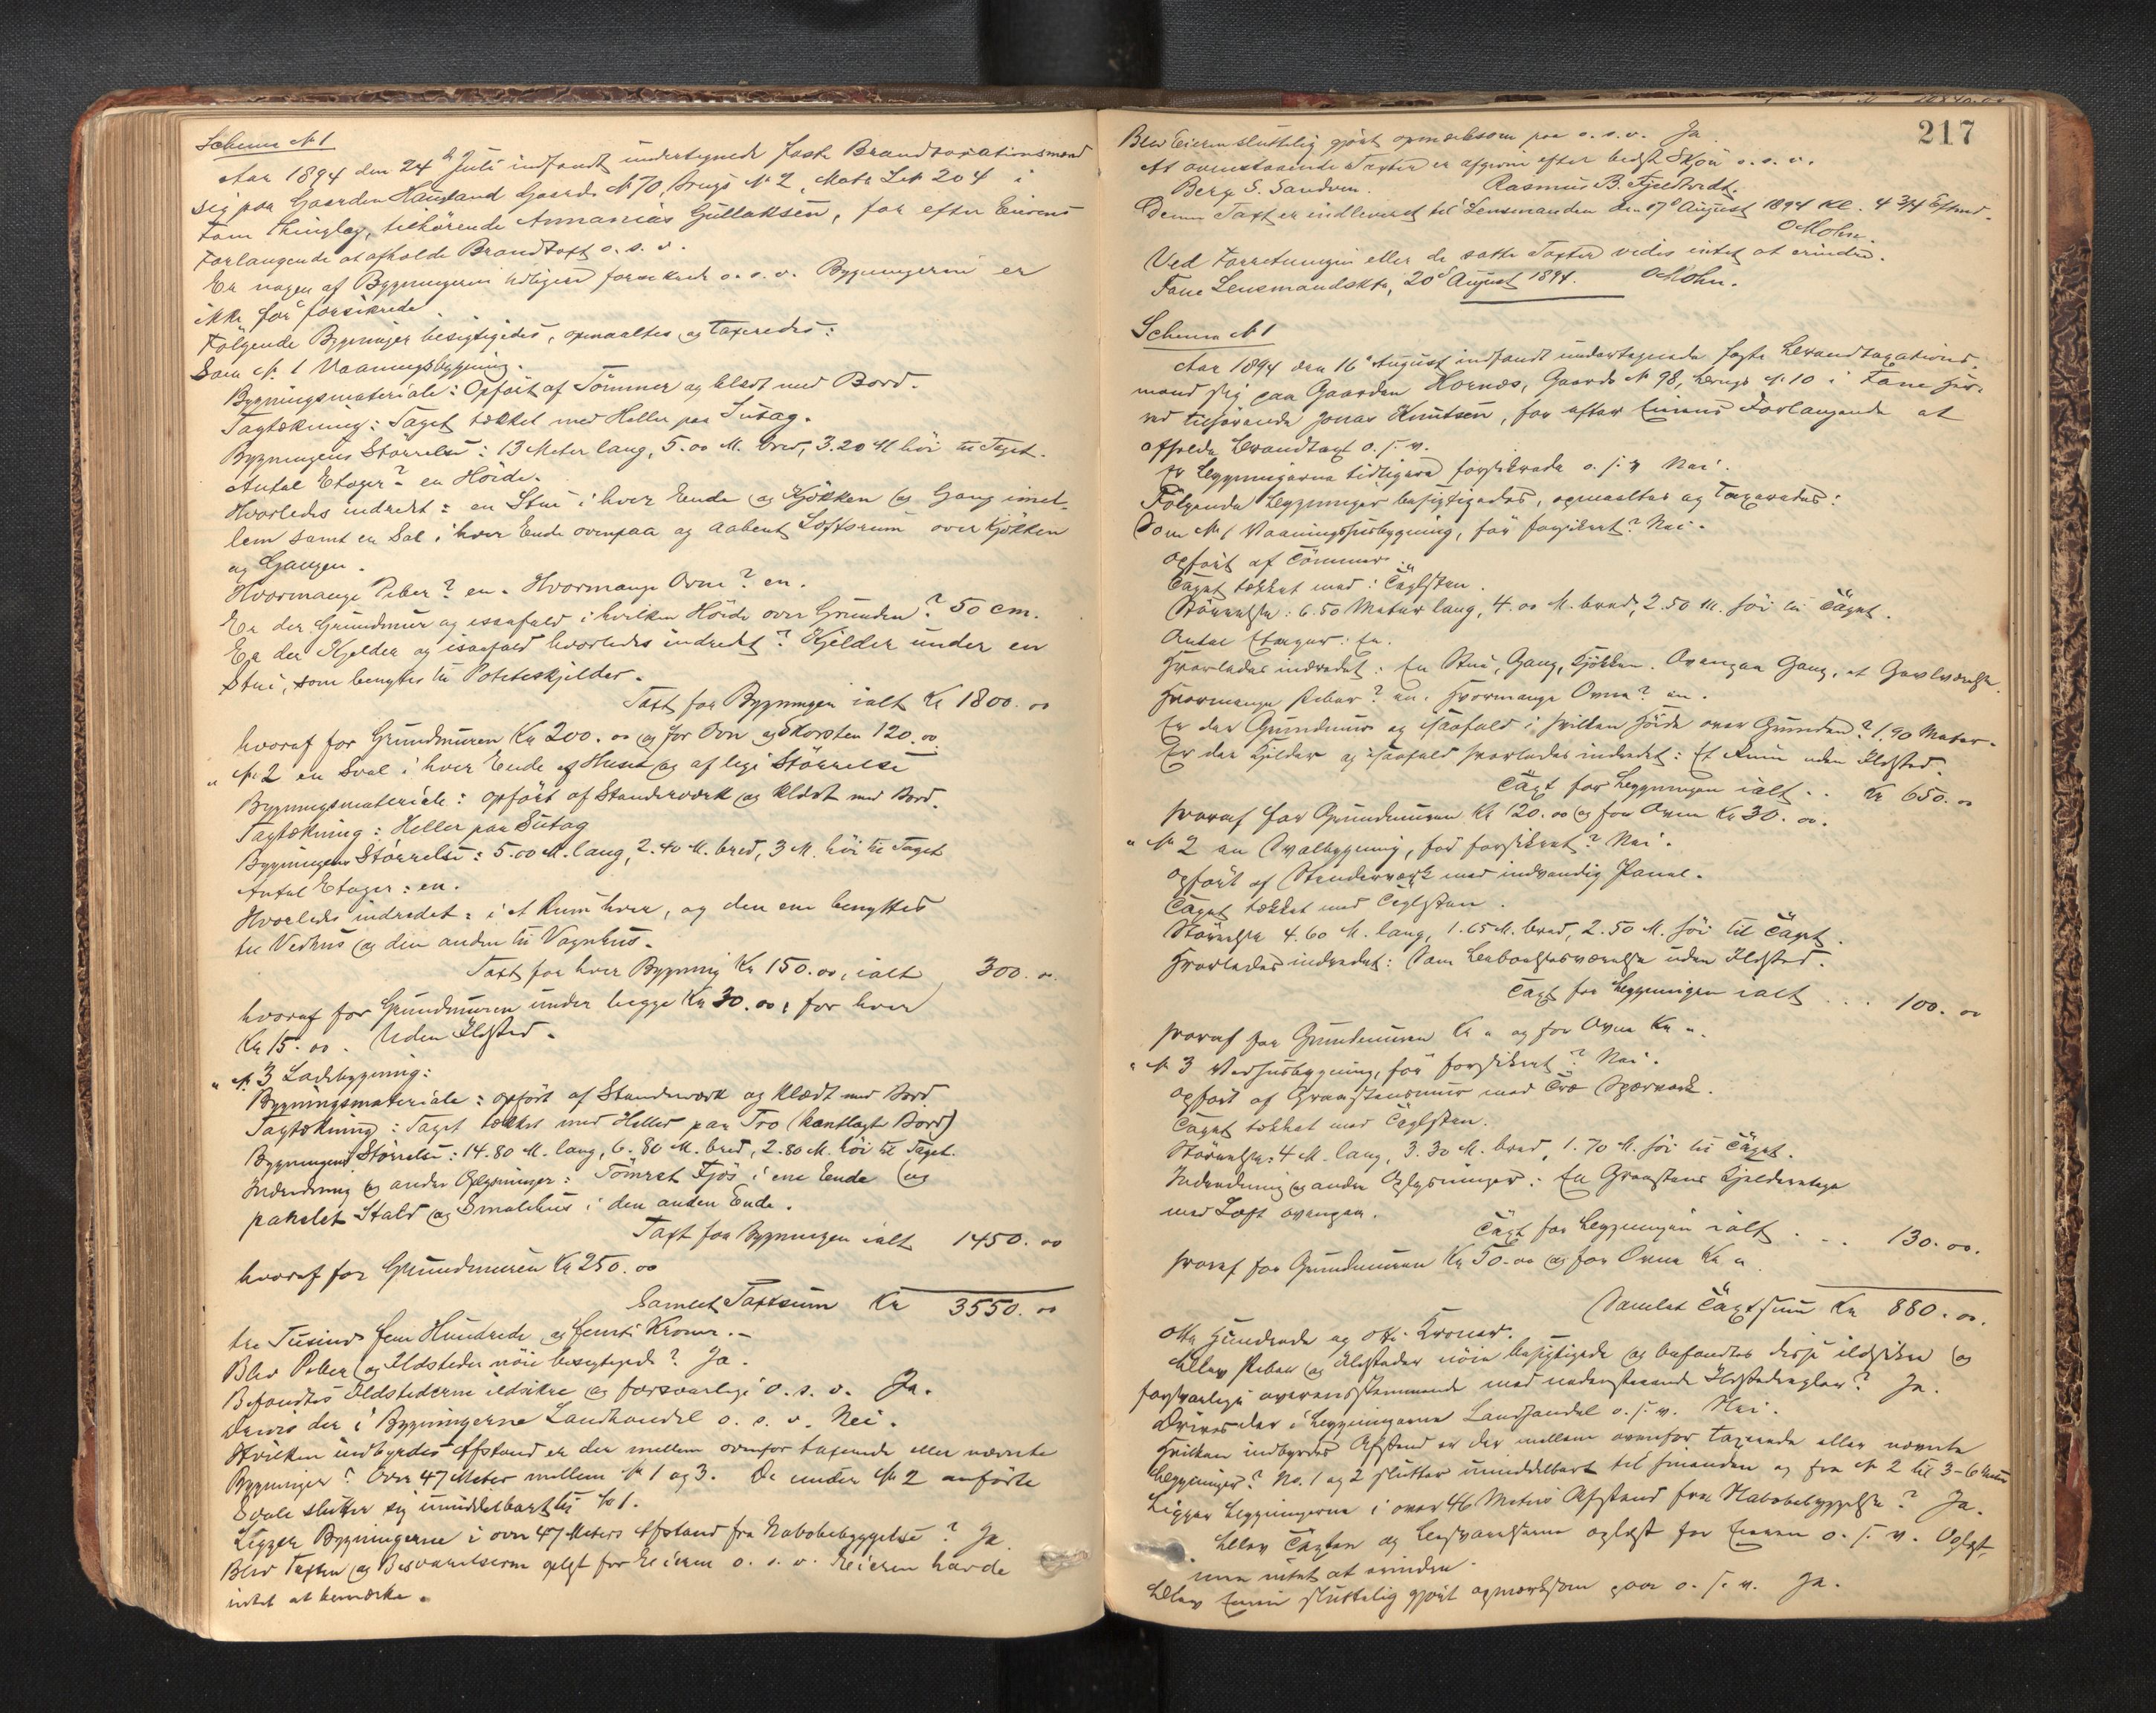 Schema № 1
Aar 1894 den 24de Juli indfandt undertegnede faste Brandtaxationsmænd
sig paa Gaarden Haugland Gaards № 70, Brugs № 2, Matr Lit 204 i
Fane Thinglag, tilhørende Annanias Gullaksen, for efter Eierens
Forlangende at afholde Brandtaxt o. s. v.
Er nogen af Bygningerne tidligere forsikrede o. s. v. Bygningerne er
ikke før forsikrede.
Følgende Bygninger besigtigedes, opmaaltes og taxeredes:
Som № 1 Vaaningsbygning.
Bygningsmateriale: Opført af Tømmer og klædt med Bord.
Tagtækning: Taget tækket med Heller paa Sutag.
Bygningens Størrelse: 13 Meter lang, 5.00 M. bred, 3.20 M høi til Taget.
Antal Etager? en Høide.
Hvorledes indredet: en Stue i hver Ende og Kjøkken og Gang imel-
lem samt en Sal i hver Ende ovenpaa og aabent Loftsrum over Kjøkken
og Gangen.
Hvormange Piber? en. Hvormange Ovne? en.
Er der Grundmur og isaafald i hvilken Høide over Grunden? 50 cm.
Er der Kjelder og isaafald hvorledes indredet? Kjelder under en
Stue, som benyttes til Poteteskjelder.
Taxt for Bygningen ialt Kr 1800.00
hvoraf for Grundmuren Kr 200.00 og for Ovn og Skorsten 120.00
" № 2 en Sval i hver Ende af Huset og af lige Størrelse
Bygningsmateriale: opført af Stenderværk og klædt med Bord.
Tagtækning: Heller paa Sutag
Bygningens Størrelse: 5.00 M. lang, 2.40 M. bred, 3 M. høi til Taget
Antal Etager: en.
Hvorledes indredet: i et Rum hver, og den ene benyttes
til Vedhus og den anden til Vognhus.
Taxt for hver Bygning Kr 150.00, ialt 300.00
hvoraf for Grundmuren under begge Kr 30.00, for hver
Kr 15.00. Uden Ildsted.
" № 3 Ladebygning:
Bygningsmateriale: opført af Stenderværk og klædt med Bord
Tagtækning: Taget tækket med Heller paa Tro (kantlagte Bord)
Bygningens Størrelse: 14.80 M. lang, 6.80 M. bred, 2.80 M. høi til Taget.
Indredning og andre Oplysninger: Tømret Fjøs i ene Ende og
panelet Stald og Smalehus i den anden Ende.
Taxt for Bygningen ialt 1450.00
hvoraf for Grundmuren Kr 250.00
Samlet Taxtsum Kr 3550.00
tre Tusind fem Hundrede og femti Kroner.-
Blev Piber og Ildsteder nøie besigtigede? Ja.
Befandtes Ildstederne ildsikre og forsvarlige o. s. v. Ja.
Drives der i Bygningerne Landhandel o. s. v. Nei.
Hvilken indbyrdes Afstand er der mellem ovenfor taxerede eller nævnte
Bygninger? Over 47 Meter mellem № 1 og 3. De under № 2 anførte
Svale slutter sig umiddelbart til № 1.
Ligger Bygningerne i over 47 Meters Afstand fra Nabobebyggelse? Ja.
Blev Taxten og Besvarelserne oplæst for Eieren o. s. v. Eieren havde
intet at bemærke.
217
Blev Eieren sluttelig gjort opmærksom paa o. s. v. Ja
At ovenstaaende Taxter er afgivne efter bedste Skjøn o. s. v.
Berge S. Sandven. Rasmus B. Fjeldtvedt.
Denne Taxt er indleveret til Lensmanden den 17de August 1894 Kl. 4 3/4 Eftmd.
O Mohn.
Ved Forretningen eller de satte Taxter vides intet at erindre.
Fane Lensmandsktr, 20de August 1894. O Mohn.
Schema № 1
Aar 1894 den 16de August indfandt undertegnede faste Brandtaxations-
mænd sig paa Gaarden Hornæs, Gaards № 98, Brugs № 10 i Fane Her-
red tilhørende Jonas Knutsen, for efter Eierens Forlangende at
afholde Brandtaxt o. s. v.
Er Bygningerne tidligere forsikrede o. s. v Nei.
Følgende Bygninger besigtigedes, opmaaltes og taxeredes:
Som № 1 Vaaningshusbygning, før forsikret? Nei.
Opført af Tømmer.
Taget tækket med: Taglsten.
Størrelse: 6.50 Meter lang, 4.00 M. bred, 2.50 M. høi til Taget.
Antal Etager: En.
Hvorledes indredet: En Stue, Gang, Kjøkken. Ovenpaa Gang, et Gavlværelse.
Hvormange Piber? en. Hvormange Ovne? en.
Er der Grundmur og isaafald i hvilken Høide over Grunden? 1.90 Meter.
Er der Kjelder og isaafald hvorledes indredet: Et Rum uden Ildsted.
Taxt for Bygningen ialt .. Kr 650.00
hvoraf for Grundmuren Kr 120.00 og for Ovne Kr 30.00.
" № 2 en Svalbygning, før forsikret? Nei.
Opført af Stenderværk med indvendig Panel.
Taget tækket med Teglsten.
Størrelse 4.60 M. lang, 1.65 M. bred, 2.50 M. høi til Taget.
Hvorledes indredet: Som Beboelsesværelse uden Ildsted.
Taxt for Bygningen ialt ... 100.00
hvoraf for Grundmuren Kr " og for Ovne Kr ".
" № 3 Vedhusbygning, før forsikret? Nei.
Opført af Graastensmur med Træ Spærværk.
Taget tækket med Taglsten.
Størrelse: 4 M. lang, 3.30 M. bred, 1.70 M. høi til Taget.
Indredning og andre Oplysninger: En Graastens Kjelderetage
med Loft ovenpaa.
Taxt for Bygningen ialt ... 130.00.
hvoraf for Grundmuren Kr 50.00 og for Ovne Kr "
Samlet Taxtsum Kr 880.00.
Otte Hundrede og otti Kroner.
Blev Piber og Ildsteder nøie besigtigede og befandtes disse ildsikre og
forsvarlige overensstemmende med nedenstaaende Ildstedregler? Ja.
Drives der i Bygningerne Landhandel o. s. v. Nei.
Hvilken indbyrdes Afstand er der mellem ovenfor taxerede eller nævnte
Bygninger? No. 1 og 2 slutter umiddelbart til hinanden og fra № 2 til 3 - 6 Meter
Ligger Bygningerne i over 46 Meters Afstand fra Nabobebyggelse? Ja.
Blev Taxten og Besvarelserne oplæst for Eieren o. s. v. Oplæst,
intet at erindre.
Blev Eieren sluttelig gjort opmærksom paa o. s. v. Ja.